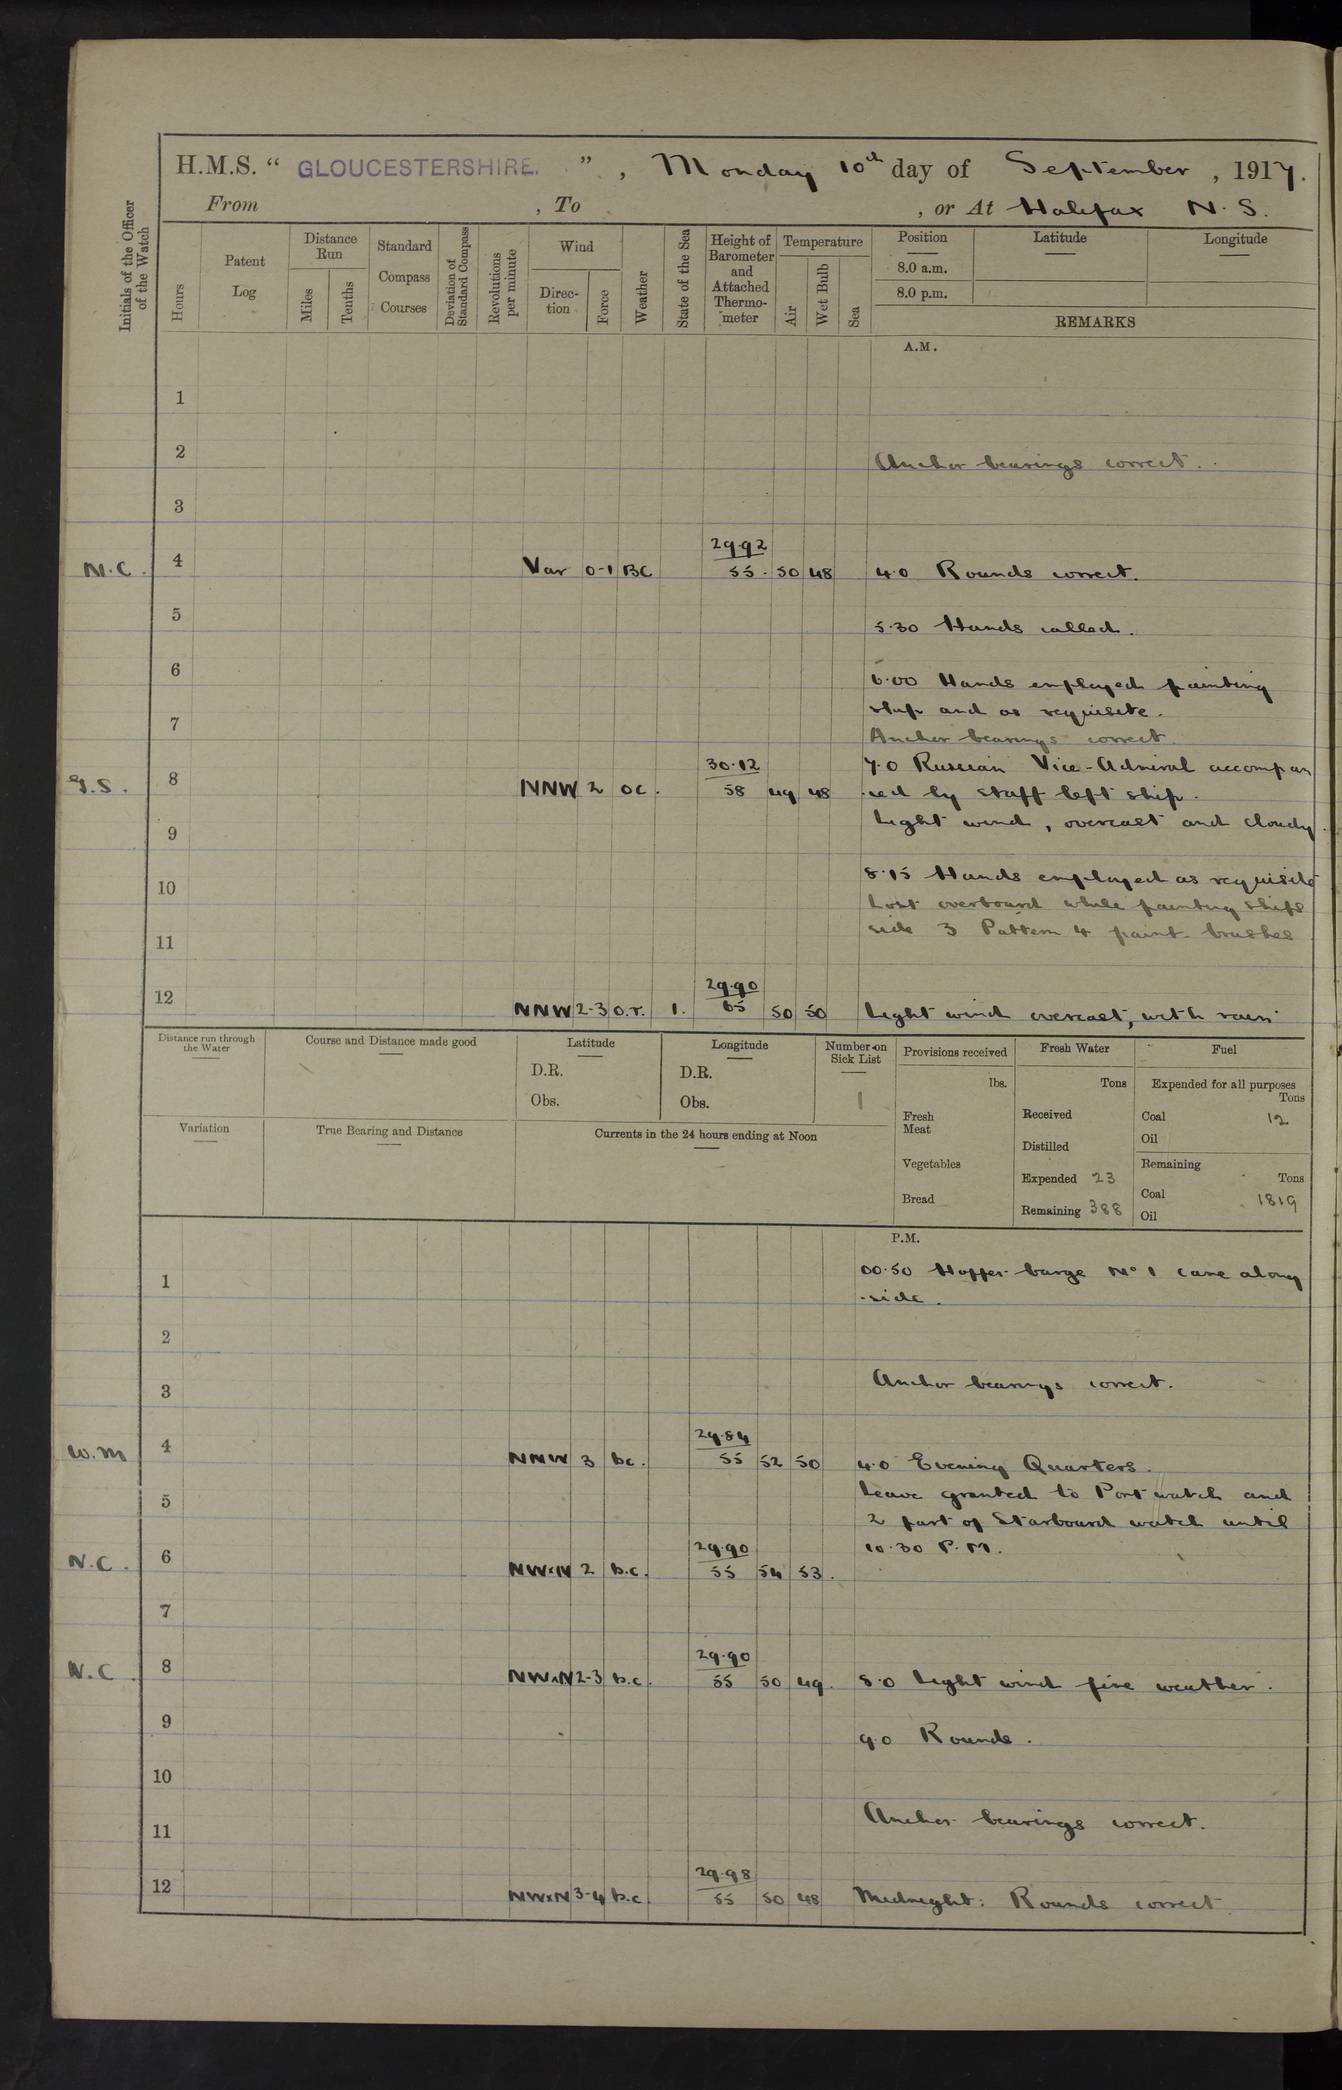 H.M.S. " GLOUCESTERSHIRE. ", Monday 10th day of September, 1917.
From , To , or At Halifax N.S.
Initials of the Officer of the Watch
Hours
Patent Log
Distance Run
Miles
Tenths
Standard Compass Courses
Deviation of Standard Compass
Revolutions per minute
Wind
Direction
Force
Weather
State of the Sea
Height of Barometer and Attached Thermometer
Temperature
Air
Wet Bulb
Sea
Position
Latitude
Longitude
8.0 a.m.
8.0 p.m.
REMARKS
A.M.
1
2 Anchor bearings correct.
3
N.C. 4 Var 0-1 BC 29.92 55. 50 48 4.0 Rounds correct.
5 5.30 Hands called.
6 6.00 Hands employed painting
ship and as requisite.
7 Anchor bearings correct.
7.0 Russian Vice-Admiral accompan
8 NNW 2 oc. 30.12 58 49 48 -ied by staff left ship.
Light wind, overcast and cloudy.
9
8.15 Hands employed as requisite
10 Lost overboard while painting ships
side 3 Pattern 4 paint brushes
11
12 NNW 2-3 o.r. 1. 29.90 65 50 50 Light wind overcast, with rain
Distance run through the Water
Course and Distance made good
Latitude
D.R.
Obs.
Longitude
D.R.
Obs.
Number on Sick List
1
Provisions received
lbs.
Fresh Meat
Vegetables
Bread
Fresh Water
Tons
Received
Distilled
Expended 23
Remaining 388
Fuel
Expended for all purposes
Tons
Coal 12
Oil
Remaining
Tons
Coal 1819
Oil
Variation
True Bearing and Distance
Currents in the 24 hours ending at Noon
P.M.
1 00.50 Hopper barge No 1 came along
-side.
2
3 Anchor bearings correct.
W.M 4 NNW 3 bc. 29.84 55 52 50 4.0 Evening Quarters.
Leave granted to Port watch and
5 2 part of Starboard watch until
10.30 P.M.
N.C. 6 NWxN 2 b.c. 29.90 55 54 53.
7
N.C. 8 NWxN 2-3 b.c. 29.90 55 50 49. 8.0 Light wind fine weather.
9 9.0 Rounds.
10
11 Anchor bearings correct.
12 NWxN 3-4 b.c. 29.98 55 50 48 Midnight: Rounds correct.